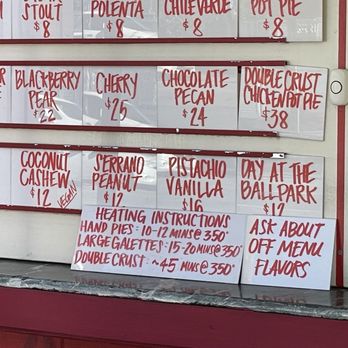 STOUT
$8
POLENTA
$8
CHILE VERDE
$8
POT PIE
$8
BLACKBERRY
PEAR
$22
CHERRY
$25
CHOCOLATE
PECAN
$24
DOUBLE CRUST
CHICKEN POT PIE
$38
COCONUT
CASHEW
$12
VEGAN
SERRANO
PEANUT
$12
PISTACHIO
VANILLA
$16
DAY AT THE
BALL PARK
$12
HEATING INSTRUCTIONS
HAND PIES: 10-12 MINS @ 350°
LARGE GALETTES: 15-20 MINS @ 350°
DOUBLE CRUST: ~45 MINS @ 350°
ASK ABOUT
OFF MENU
FLAVORS